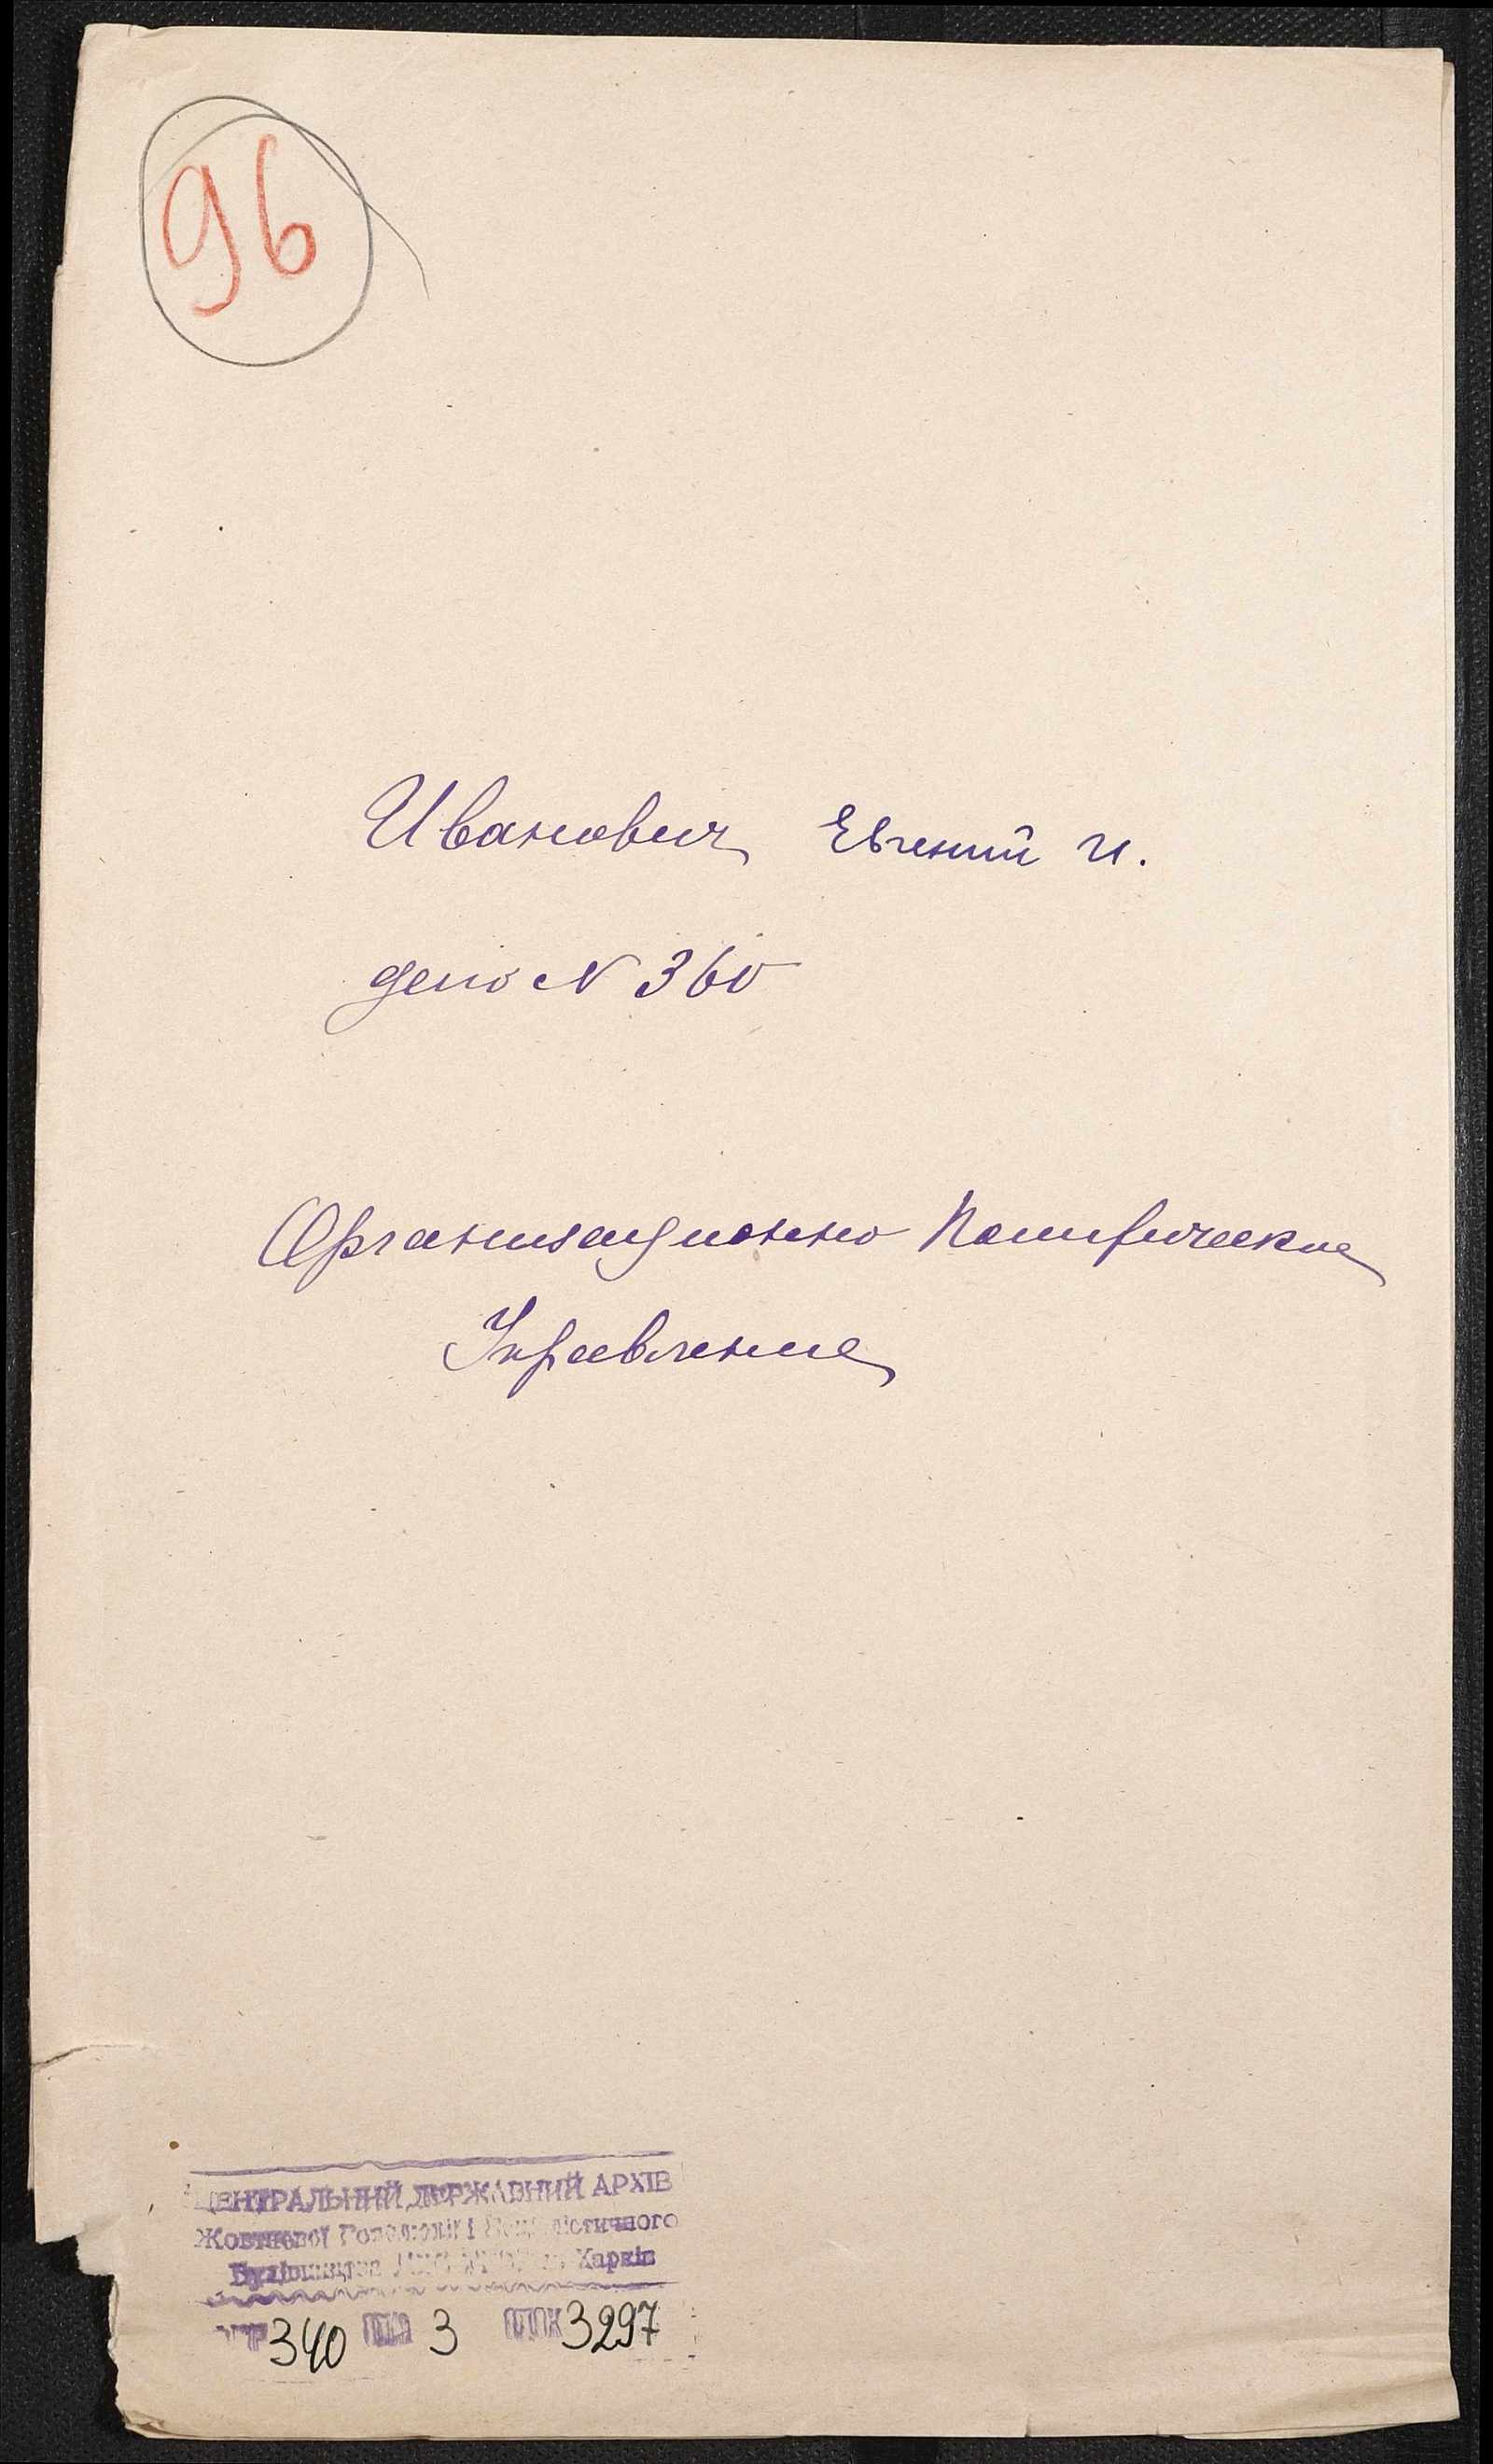 96
Иванович Евгений И.
дело N 360
Организационно Политическое
Управление
ЦЕНТРАЛЬНИЙ ДЕРЖАВНИЙ АРХІВ
Жовтневої Революції і Соціалістичного
Будівництва Харків
340 3 3297